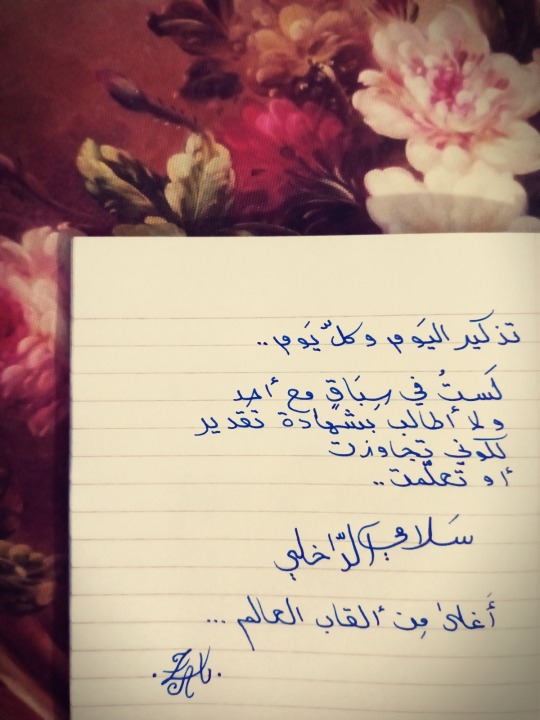 تذكير اليَوم وكلّ يَوم..
لَستُ في سِبَاقٍ مع أحدٍ
ولا أطالب بشهادة تقدير
لكوني تجاوزت
أو تعلّمت..
سَلامي الدّاخلي
أَغلىٰ مِن ألقاب العالم...